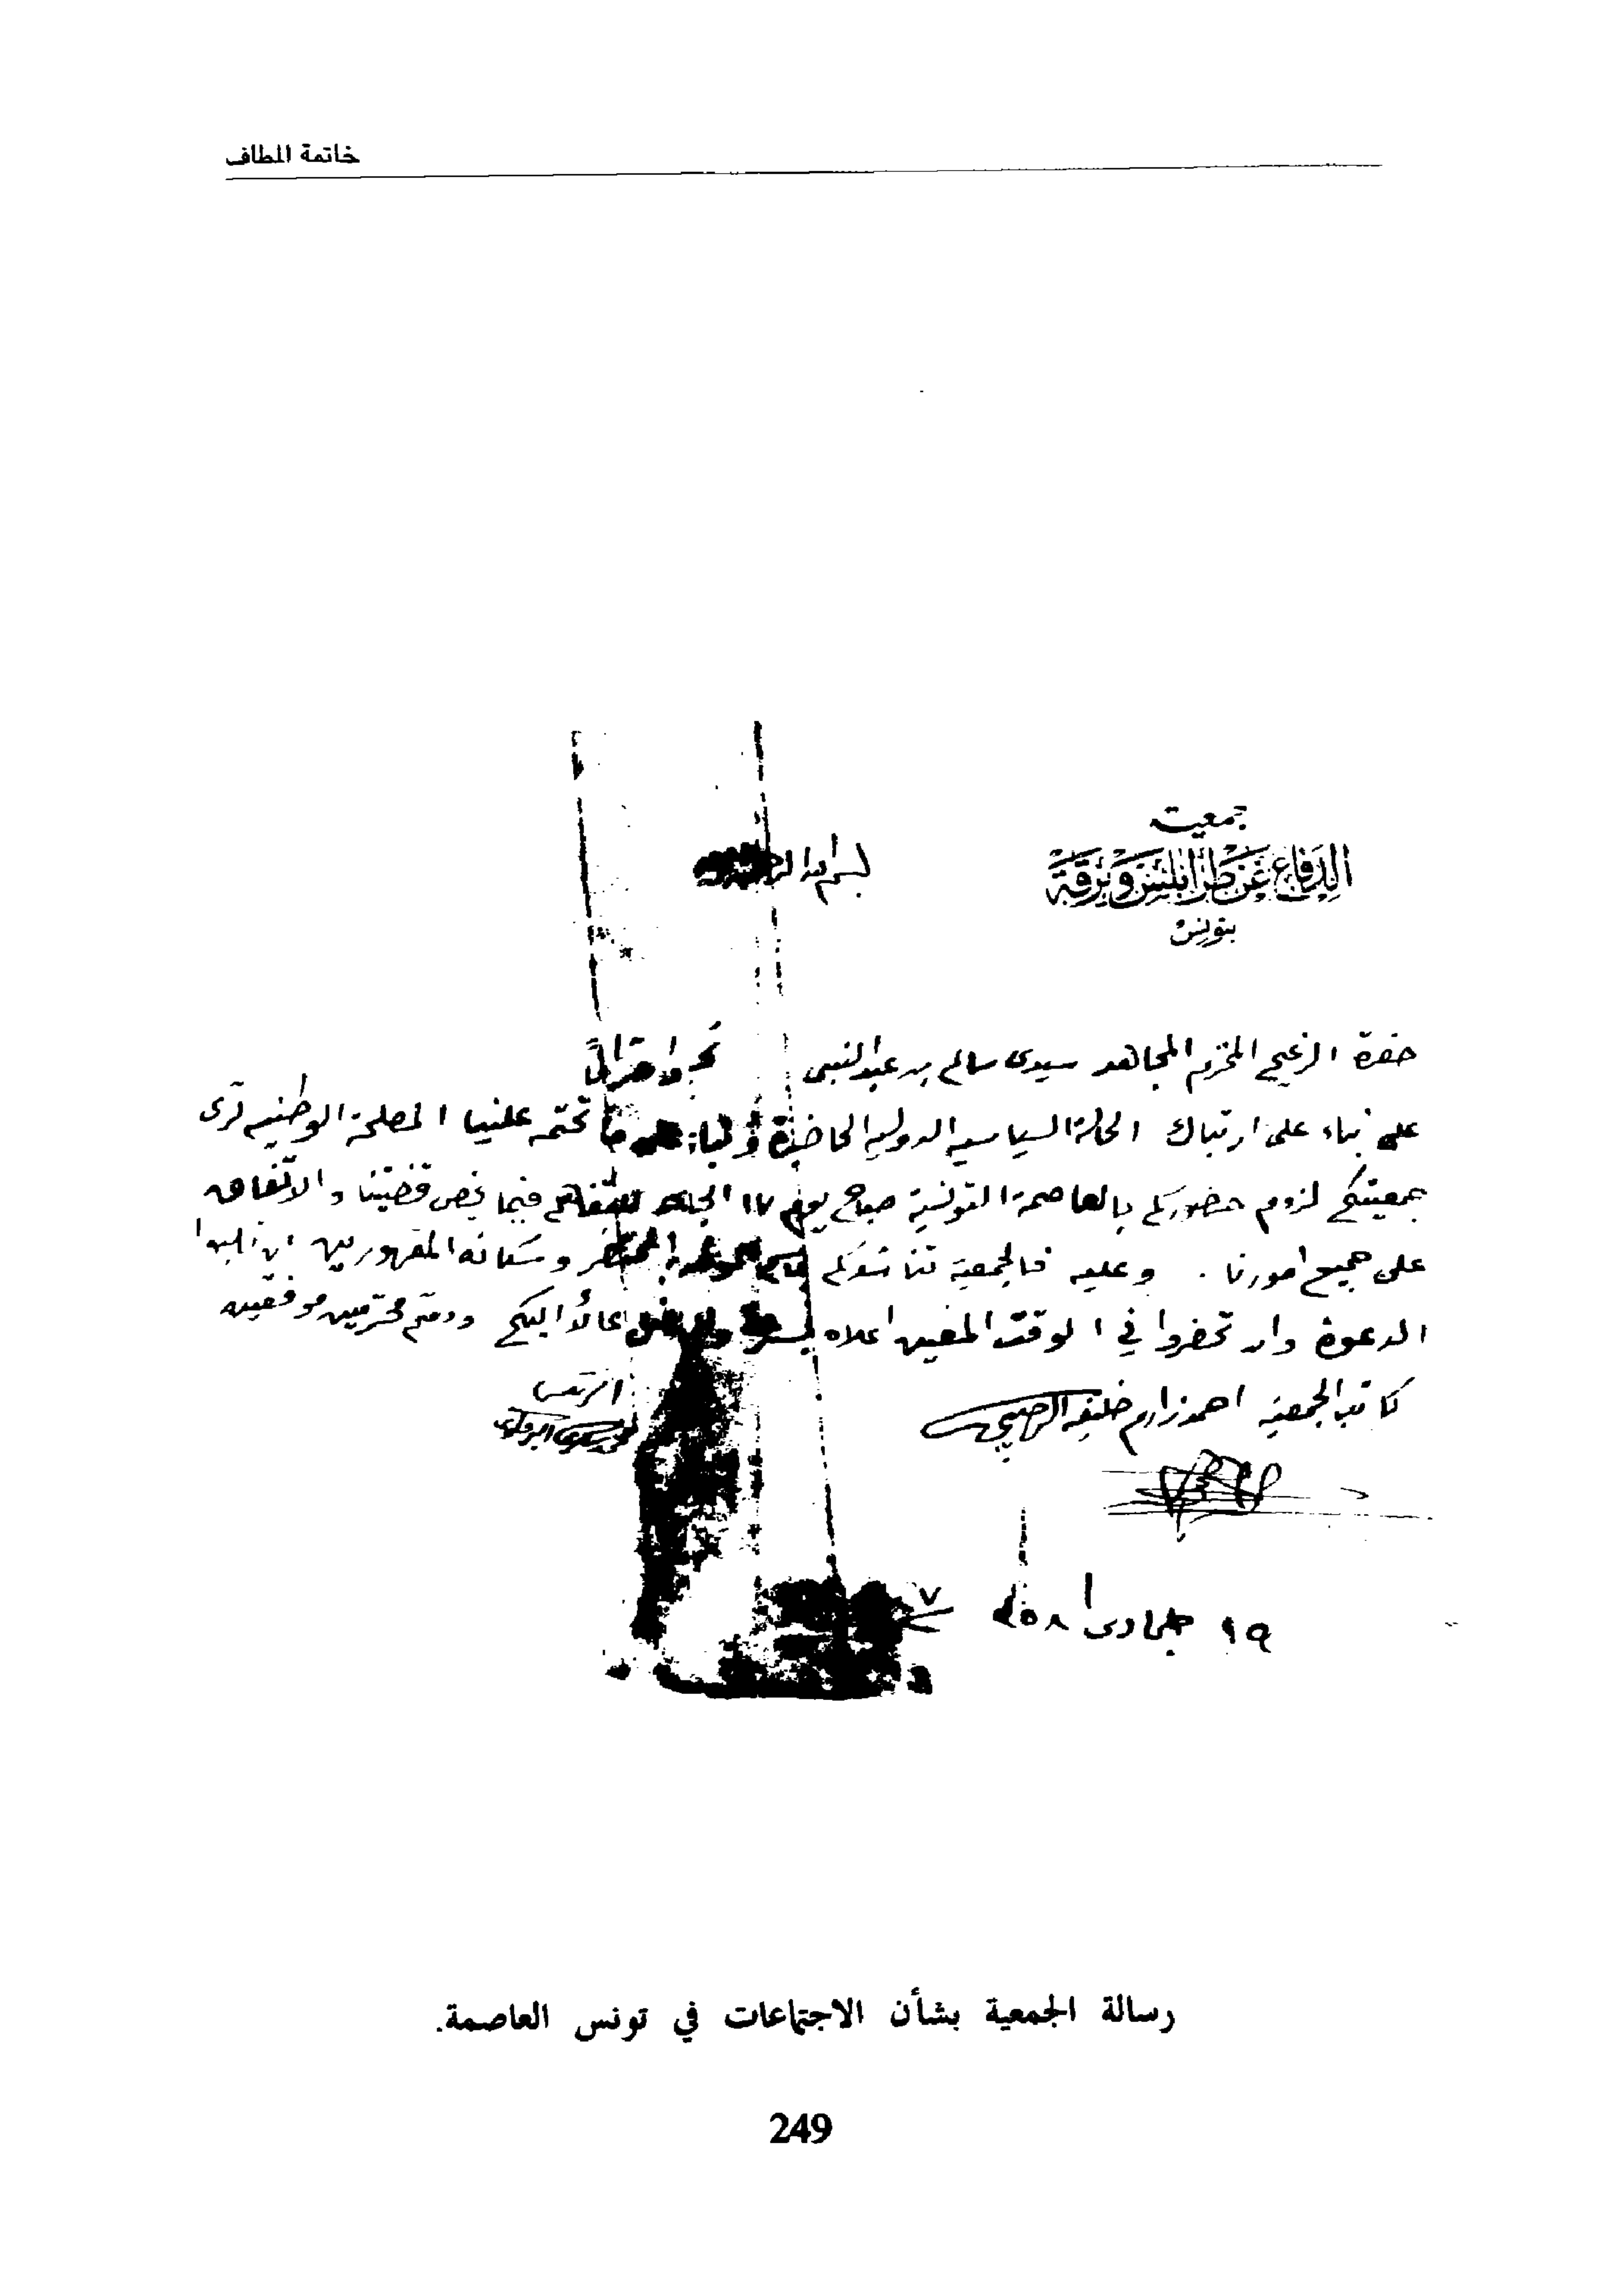 خاتمة المطاف
جمعيت
الدفاع عن طرابلس وبرقة
بتونس
بسم الله
حضرة الزعيم المحترم المجاهد سيدى سالم بن عبد النبى
بناء على ارتباك الحالة السياسية الدولية الحاضرة تحتمه علينا المصلحة الوطنيه ترى
جمعيتكم لزوم حضوركم بالعاصمة التونسية صباح يوم ١٧ للتفاهم فيما يخص قضيتنا والاتفاق
على جميع امورنا . وعليه فالجمعية تناشدكم وسكانه المقهورين ان تلبوا
الدعوة وان تحضروا في الوقت المعين اعلاه اليكم ودمتم محترمين موفقين
كاتب الجمعيه احمد زارم خليفه
الرئيس
١٩ جمادى
رسالة الجمعية بشأن الاجتماعات في تونس العاصمة.
249